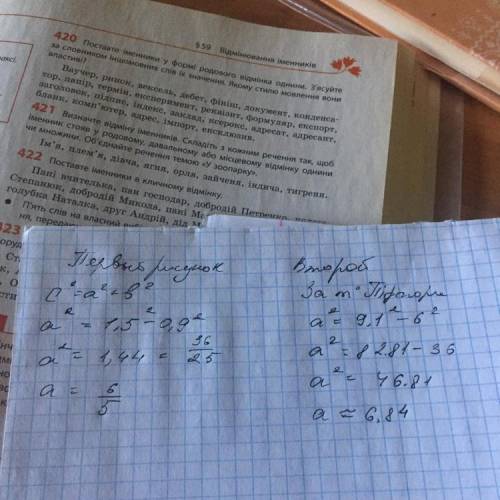 § 59 Відмінювання іменників
420 Поставте іменники у формі родового відмінка однини. З'ясуйте
за словником іншомовних слів їх значення. Якому стилю мовлення вони
властиві?
Ваучер, ринок, вексель, дебет, фініш, документ, конденса-
тор, папір, термін, експеримент, реквізит, формуляр, експорт,
заголовок, підпис, індекс, заклад, ксерокс, адресат, адресант,
бланк, комп'ютер, адрес, імпорт, ексклюзив.
421 Визначте відміну іменників. Складіть з кожним речення так, щоб
іменник стояв у родовому, давальному або місцевому відмінку однини
чи множини. Об'єднайте речення темою «У зоопарку».
Ім'я, плем'я, дівча, ягня, орля, зайченя, індича, тигреня.
422 Поставте іменники в кличному відмінку.
Пані вчителька, пан господар, добродій Петренко,
Степанюк, добродій Микола, пані
голубка Наталка, друг Андрій, дід
П'ять слів на власний
423
Первый рисунок
c² = a² + b²
a² = 1,5² - 0,9²
a² = 1,44 = 36/25
a = 6/5
Второй
За т° Піфагора
a² = 9,1² - 6²
a² = 82.81 - 36
a² = 46.81
a ≈ 6,84